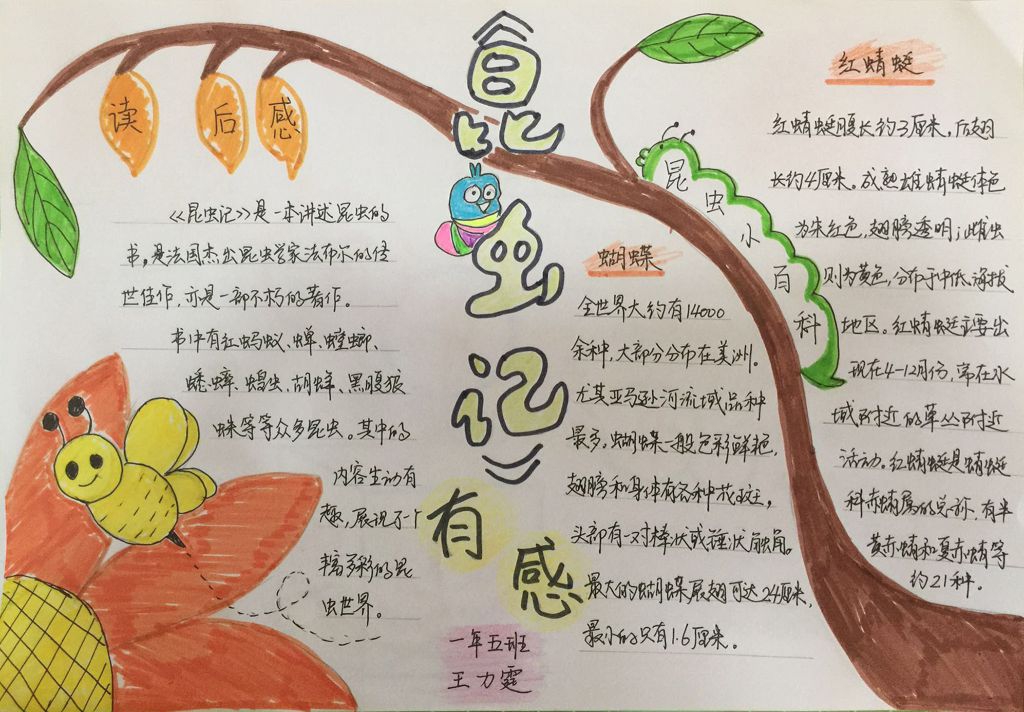 《昆虫记》有感
读后感
《昆虫记》是一本讲述昆虫的
书,是法国杰出昆虫学家法布尔的传
世佳作,亦是一部不朽的著作。
书中有红蚂蚁、蝉、螳螂、
蟋蟀、蝗虫、胡蜂、黑腹狼
蛛等等众多昆虫。其中的
内容生动有
趣,展现了个
丰富多彩的昆
虫世界。
一年五班
王力霆
蝴蝶
全世界大约有14000
余种,大部分分布在美洲。
尤其亚马逊河流域品种
最多,蝴蝶一般色彩鲜艳,
翅膀和身体有各种花斑,
头部有一对棒状或锤状触角。
最大的蝴蝶展翅可达24厘米,
最小的只有1.6厘米。
昆虫小百科
红蜻蜓
红蜻蜓腹长约3厘米,后翅
长约4厘米。成熟雄蜻蜓体色
为朱红色,翅膀透明;雌虫
则为黄色,分布于中低海拔
地区。红蜻蜓主要出
现在4-12月份,常在水
域附近的草丛附近
活动。红蜻蜓是蜻蜓
科赤蜻属的总称,有半
黄赤蜻和夏赤蜻等
约21种。